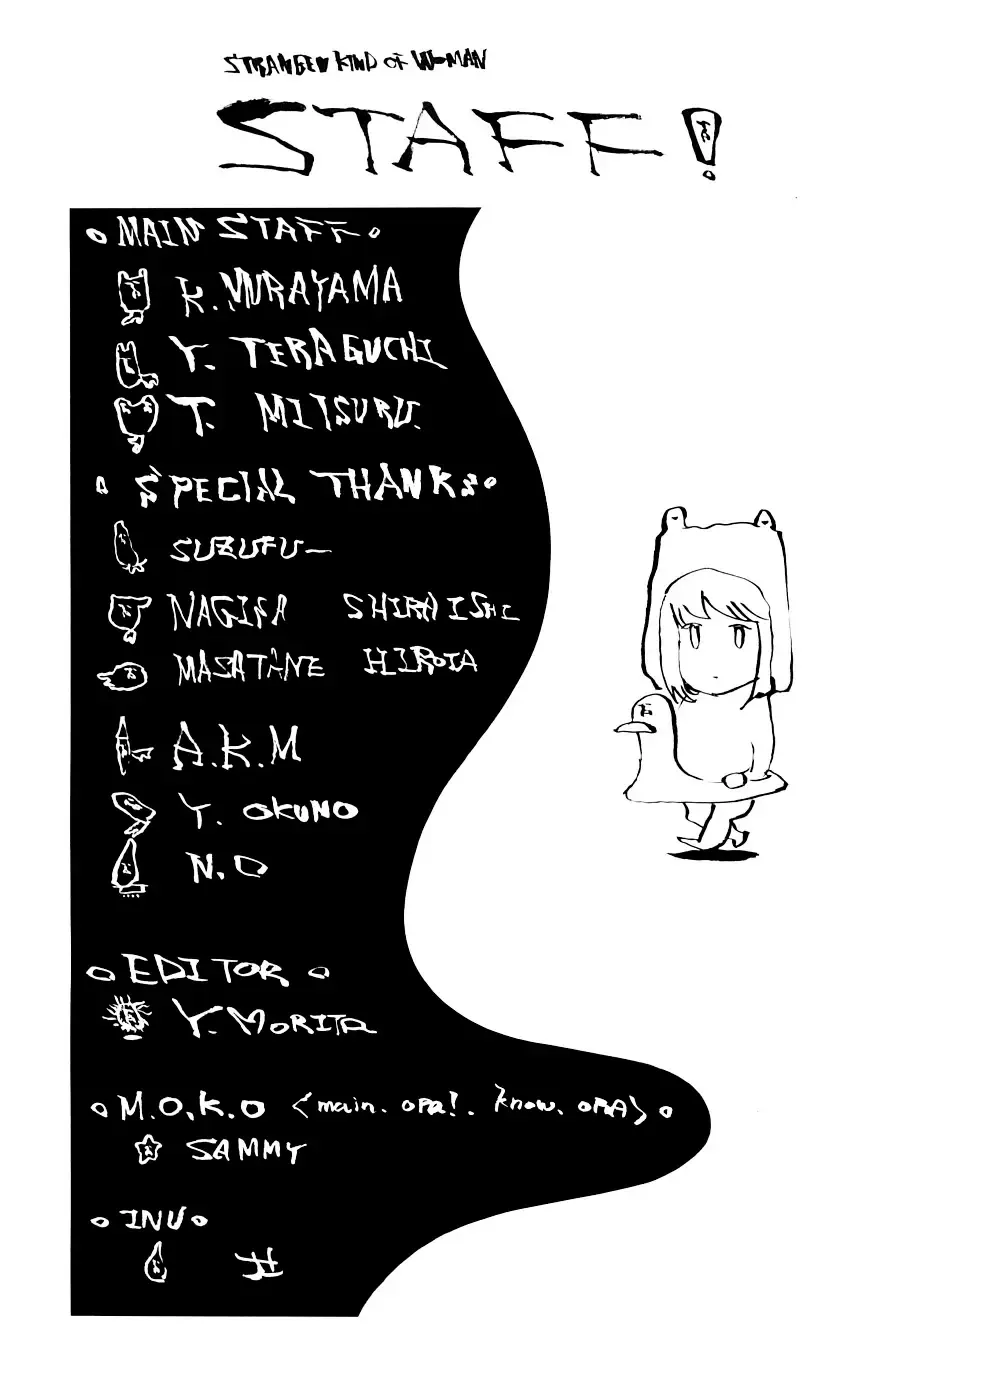 STRANGER KIND OF WOMAN
STAFF!
MAIN STAFF
K. MURAYAMA
Y. TERAGUCHI
T. MITSURU.
SPECIAL THANKS
SUZUFU—
NAGISA SHIRAISHI
MASATANE HIROTA
A.K.M
Y. OKUNO
N.O
EDITOR
Y. MORITA
M.O.K.O <main. opa!. know. OPA>
SAMMY
INU